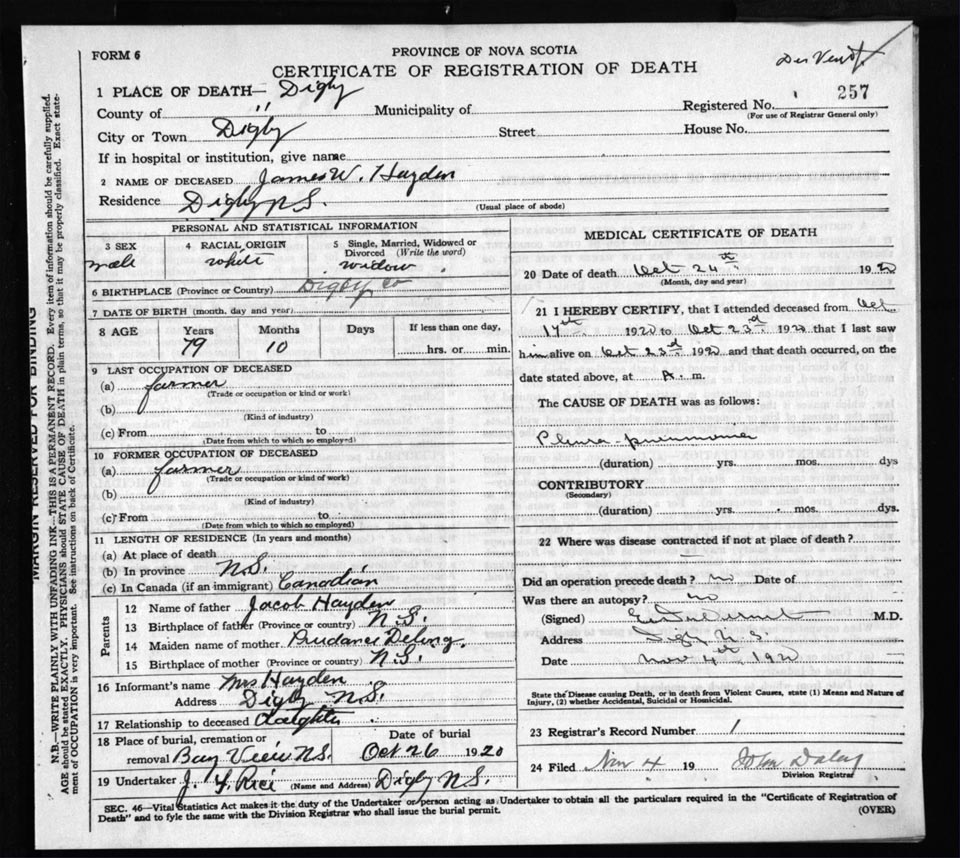 FORM 6
PROVINCE OF NOVA SCOTIA
CERTIFICATE OF REGISTRATION OF DEATH
1 PLACE OF DEATH— Digby
County of " Municipality of Registered No. 257
(For use of Registrar General only)
City or Town Digby Street House No.
If in hospital or institution, give name
2 NAME OF DECEASED James W. Hayden
Residence Digby N.S.
(Usual place of abode)
PERSONAL AND STATISTICAL INFORMATION
3 SEX 4 RACIAL ORIGIN 5 Single, Married, Widowed or Divorced (Write the word)
male white widow
6 BIRTHPLACE (Province or Country) Digby Co
7 DATE OF BIRTH (month, day and year)
8 AGE Years Months Days If less than one day,
79 10 hrs. or min.
9 LAST OCCUPATION OF DECEASED
(a) farmer
(Trade or occupation or kind or work)
(b)
(Kind of industry)
(c) From to
(Date from which to which so employed)
10 FORMER OCCUPATION OF DECEASED
(a) farmer
(Trade or occupation or kind of work)
(b)
(Kind of industry)
(c) From to
(Date from which to which so employed)
11 LENGTH OF RESIDENCE (In years and months)
(a) At place of death
(b) In province N.S.
(c) In Canada (if an immigrant) Canadian
Parents
12 Name of father Jacob Hayden
13 Birthplace of father (Province or country) N.S.
14 Maiden name of mother Prudance
15 Birthplace of mother (Province or country) N.S.
16 Informant's name Mrs Hayden
Address Digby N.S.
17 Relationship to deceased daughter
18 Place of burial, cremation or Date of burial
removal Bay View N.S. Oct 26 1920
19 Undertaker J. (Name and Address) Digby N.S.
MEDICAL CERTIFICATE OF DEATH
20 Date of death Oct 24th 1920
(Month, day and year)
21 I HEREBY CERTIFY, that I attended deceased from Oct
17th 1920 to Oct 23rd 1920 that I last saw
him alive on Oct 23rd 1920 and that death occurred, on the
date stated above, at A. m.
The CAUSE OF DEATH was as follows:
Pleura-pneumonia
(duration) yrs. mos. dys
CONTRIBUTORY
(Secondary)
(duration) yrs. mos. dys.
22 Where was disease contracted if not at place of death?
Did an operation precede death? no Date of
Was there an autopsy? no
(Signed) M.D.
Address Digby N.S.
Date Nov 4th 1920
State the Disease causing Death, or in death from Violent Causes, state (1) Means and Nature of
Injury, (2) whether Accidental, Suicidal or Homicidal.
23 Registrar's Record Number 1
24 Filed Nov 4 19 John Daley
Division Registrar
SEC. 46—Vital Statistics Act makes it the duty of the Undertaker or person acting as Undertaker to obtain all the particulars required in the "Certificate of Registration of
Death" and to fyle the same with the Division Registrar who shall issue the burial permit. (OVER)
MARGIN RESERVED FOR BINDING
N.B.—WRITE PLAINLY WITH UNFADING INK—THIS IS A PERMANENT RECORD. Every item of information should be carefully supplied.
AGE should be stated EXACTLY. PHYSICIANS should STATE CAUSE OF DEATH in plain terms, so that it may be properly classified. Exact state-
ment of OCCUPATION is very important. See instructions on back of Certificate.